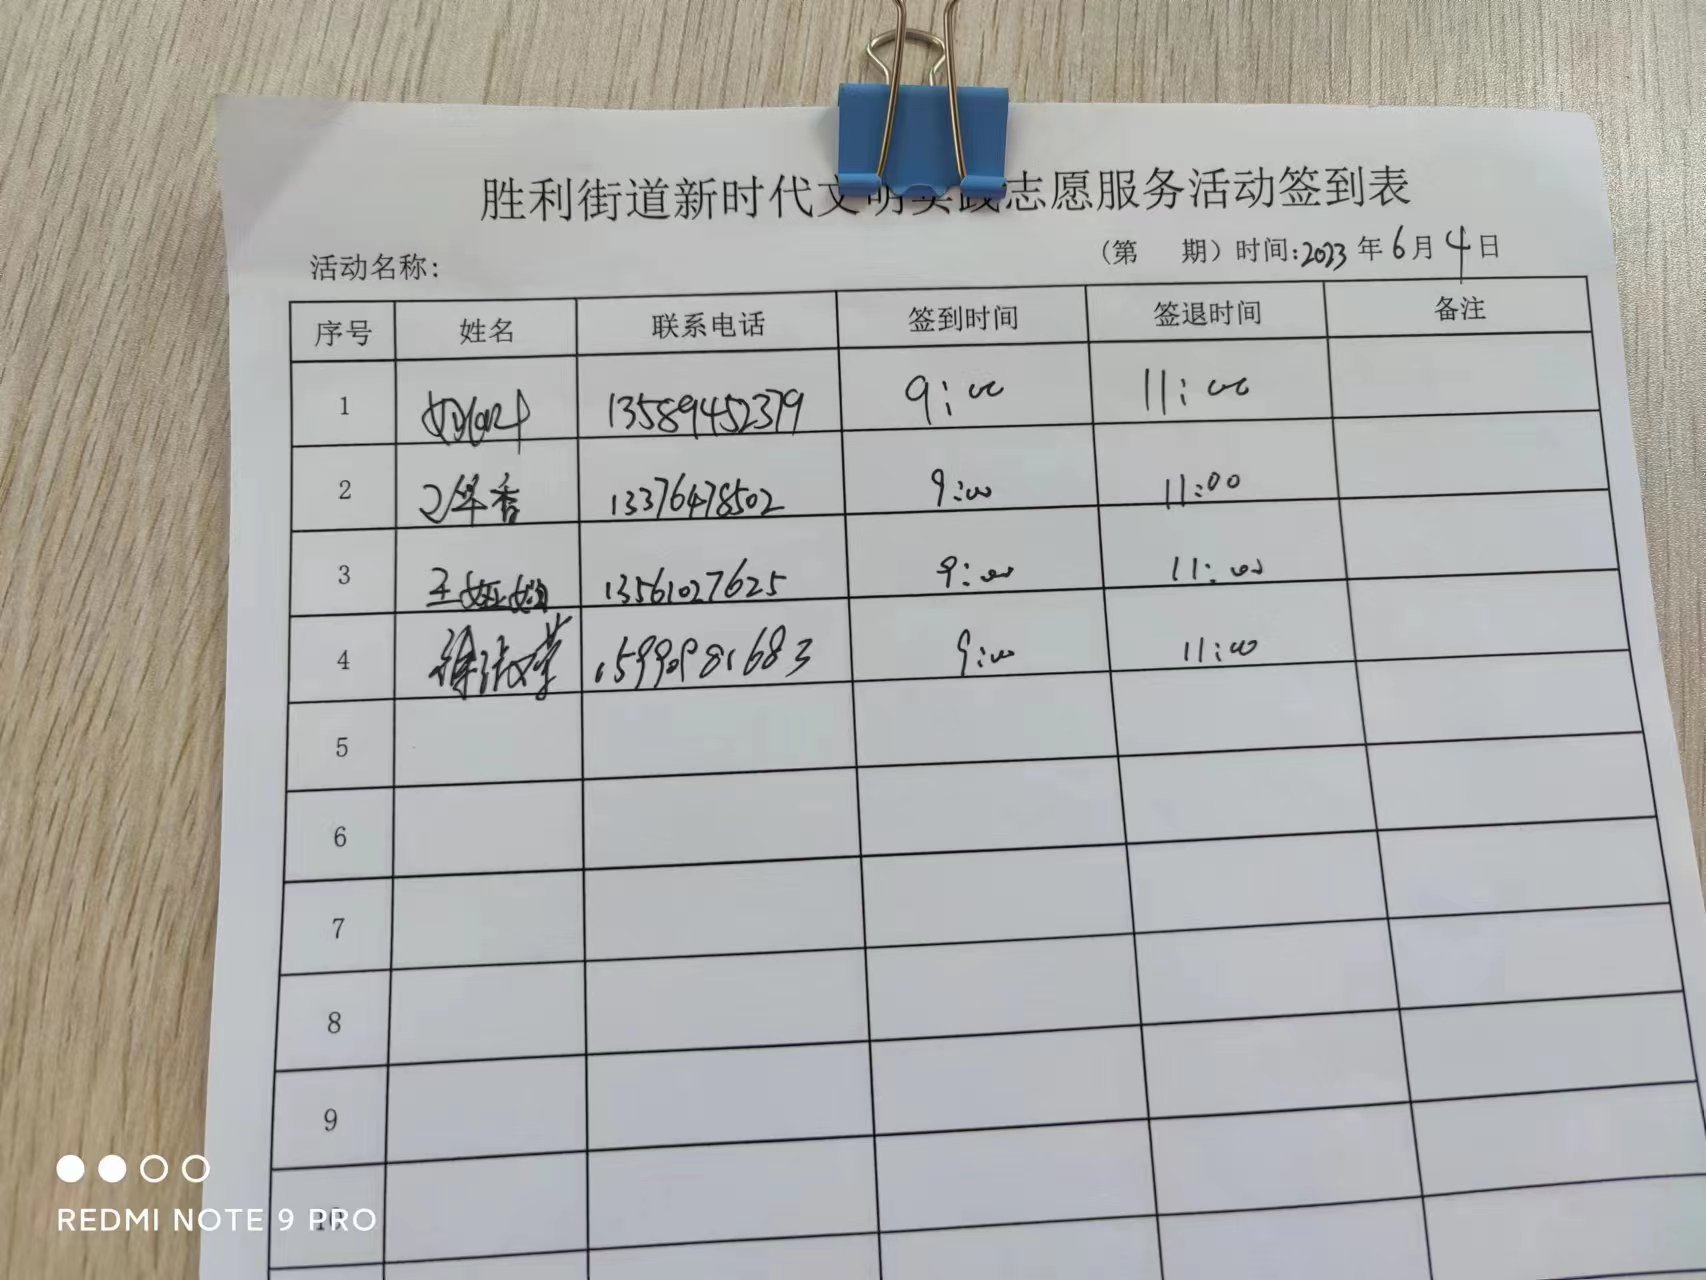 胜利街道新时代文明实践志愿服务活动签到表
活动名称: (第 期) 时间:2023 年 6 月 4 日
序号 姓名 联系电话 签到时间 签退时间 备注
1 13589452379 9:00 11:00
2 13376478502 9:00 11:00
3 王娅娟 13561027625 9:00 11:00
4 15990981683 9:00 11:00
5
6
7
8
9
10
REDMI NOTE 9 PRO